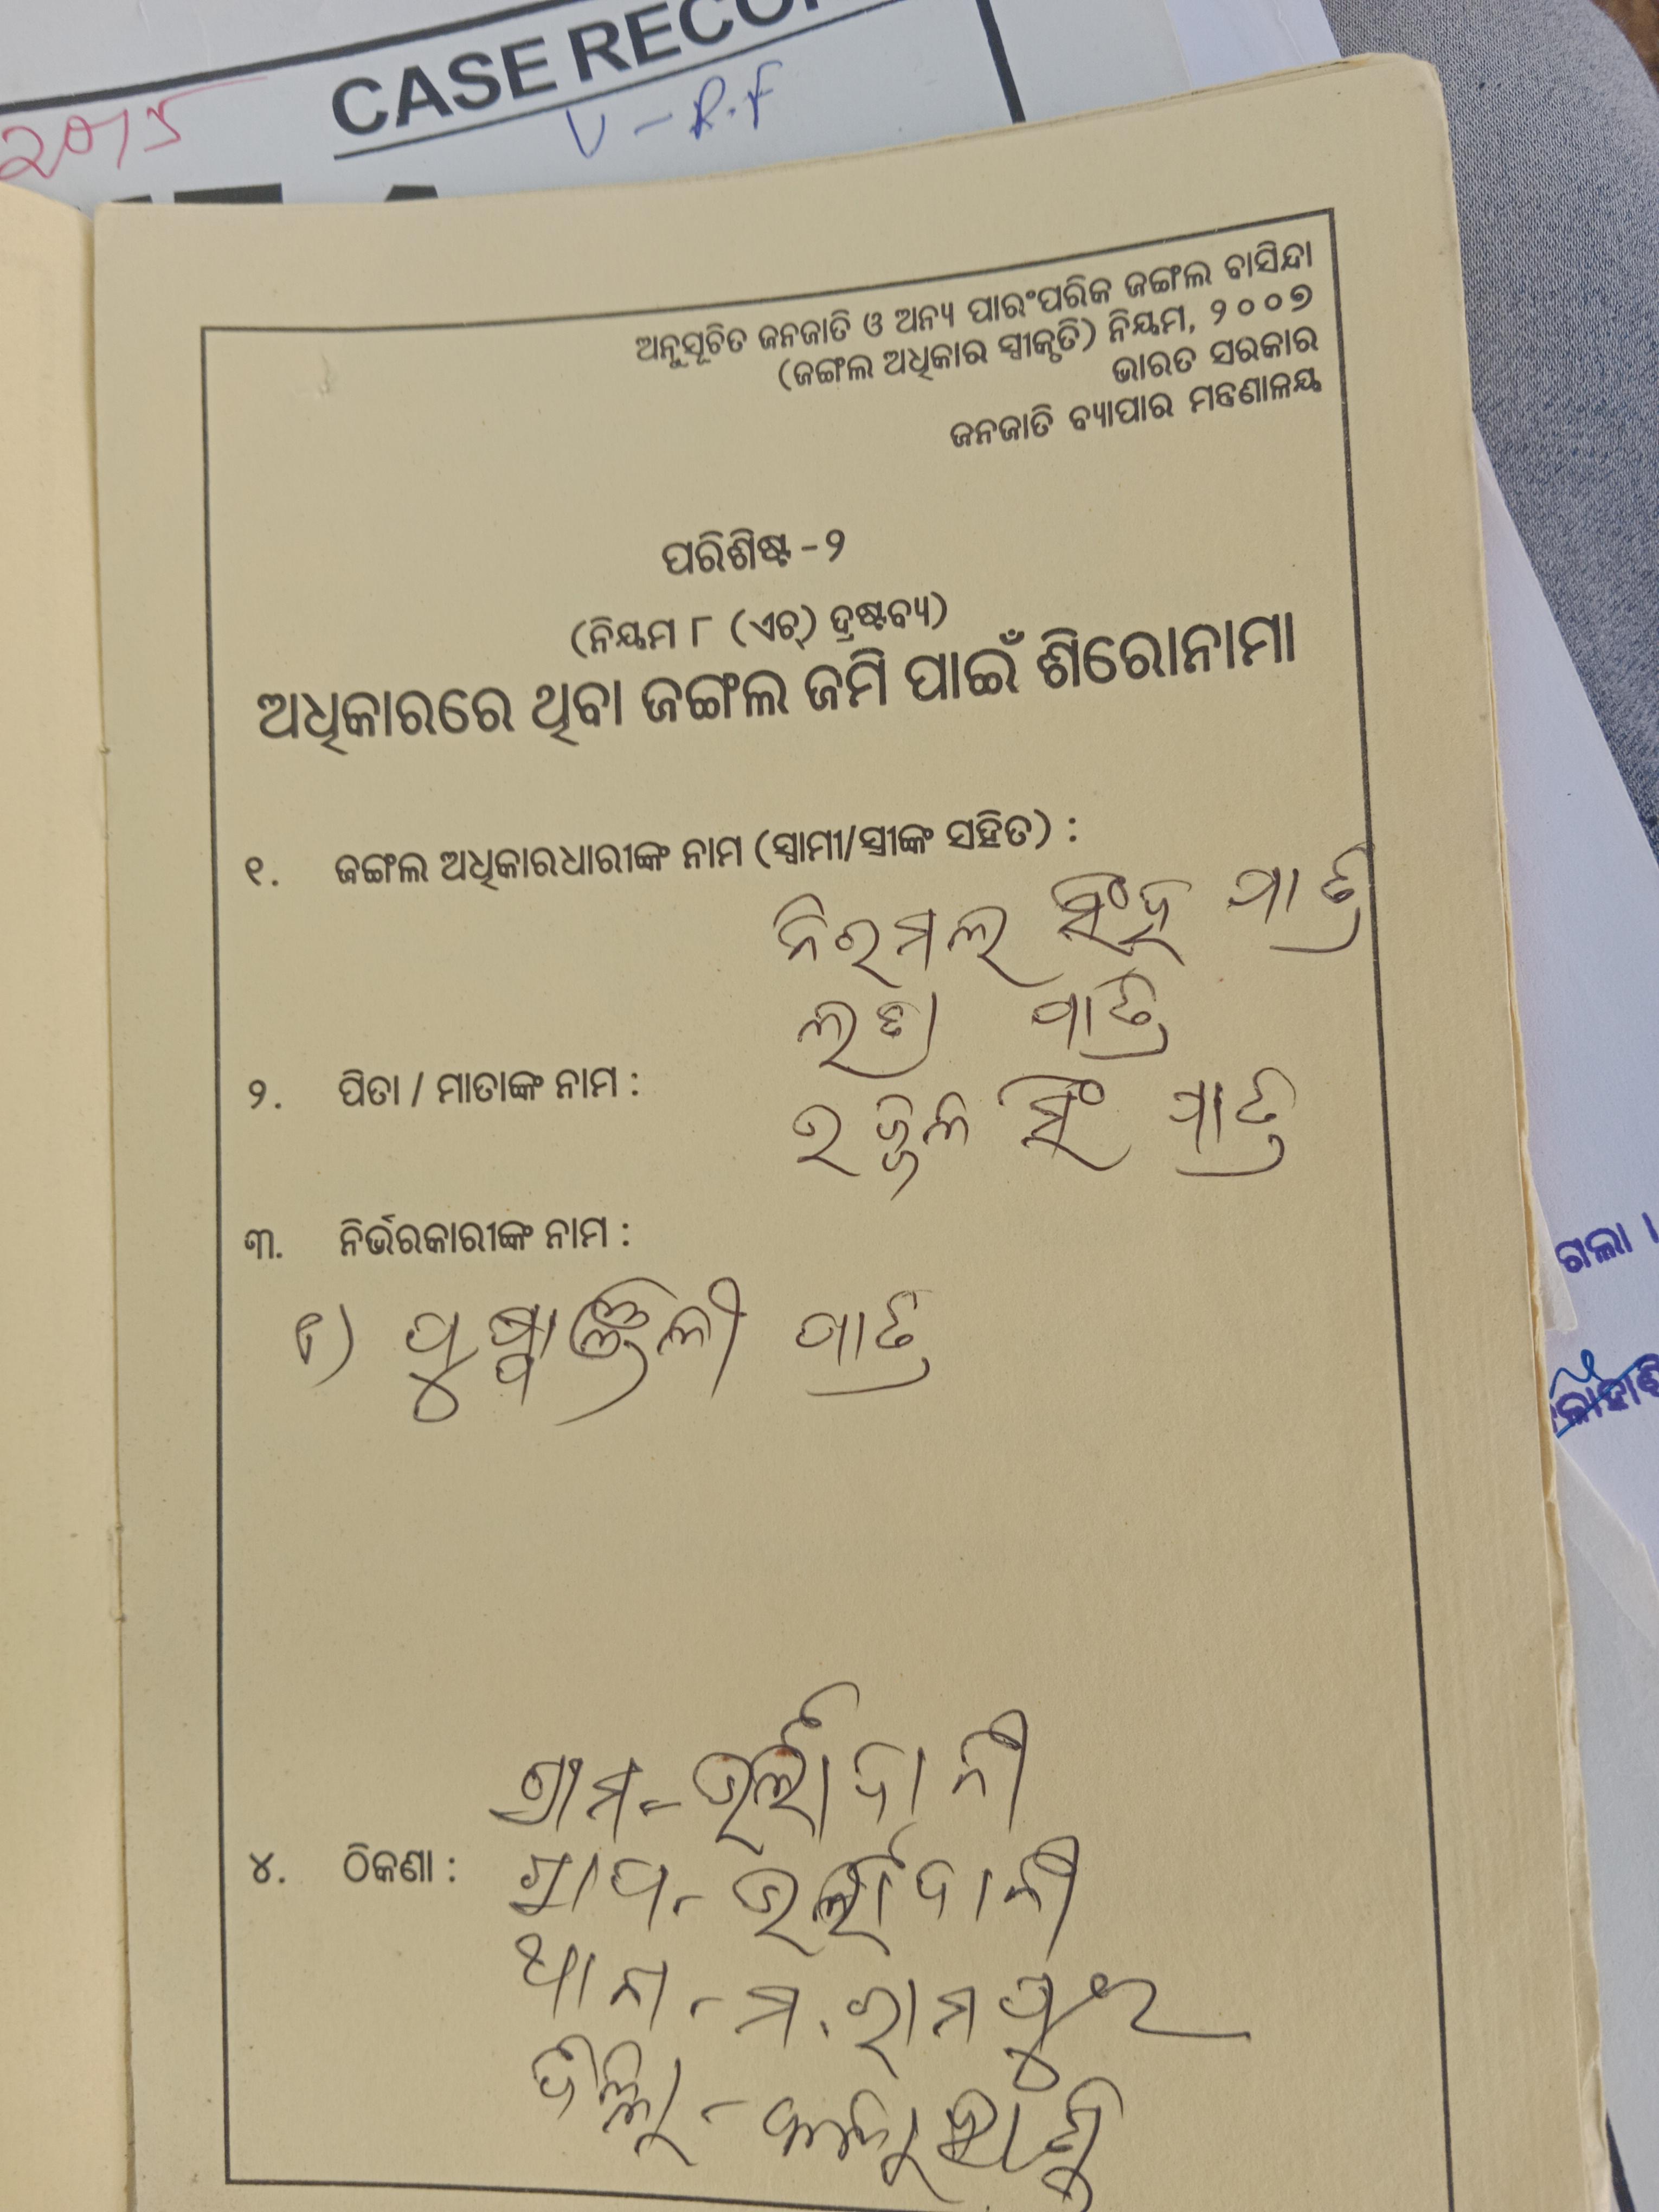 CASE RECO
2015
V - R.F
ଅନୁସୂଚିତ ଜନଜାତି ଓ ଅନ୍ୟ ପାରଂପରିକ ଜଙ୍ଗଲ ବାସିନ୍ଦା
(ଜଙ୍ଗଲ ଅଧିକାର ସ୍ୱୀକୃତି) ନିୟମ, ୨୦୦୭
ଭାରତ ସରକାର
ଜନଜାତି ବ୍ୟାପାର ମନ୍ତ୍ରଣାଳୟ
ପରିଶିଷ୍ଟ - ୨
(ନିୟମ ୮ (ଏଚ୍) ଦ୍ରଷ୍ଟବ୍ୟ)
ଅଧିକାରରେ ଥିବା ଜଙ୍ଗଲ ଜମି ପାଇଁ ଶିରୋନାମା
୧. ଜଙ୍ଗଲ ଅଧିକାରଧାରୀଙ୍କ ନାମ (ସ୍ୱାମୀ/ସ୍ତ୍ରୀଙ୍କ ସହିତ) :
ନିରମଲ ସିଂହ ମାଝି
ଲତା ମାଝି
୨. ପିତା / ମାତାଙ୍କ ନାମ :
ସିଂ ମାଝି
୩. ନିର୍ଭରକାରୀଙ୍କ ନାମ :
୧) ପୁଷ୍ପାଞ୍ଜଳୀ ମାଝି
ଗ୍ରାମ -
୪. ଠିକଣା :
ଗ୍ରା ପ -
ଥାନା - ମ. ରାମପୁର
ଜିଲ୍ଲା - କଳାହାଣ୍ଡି
ଗଲା ।